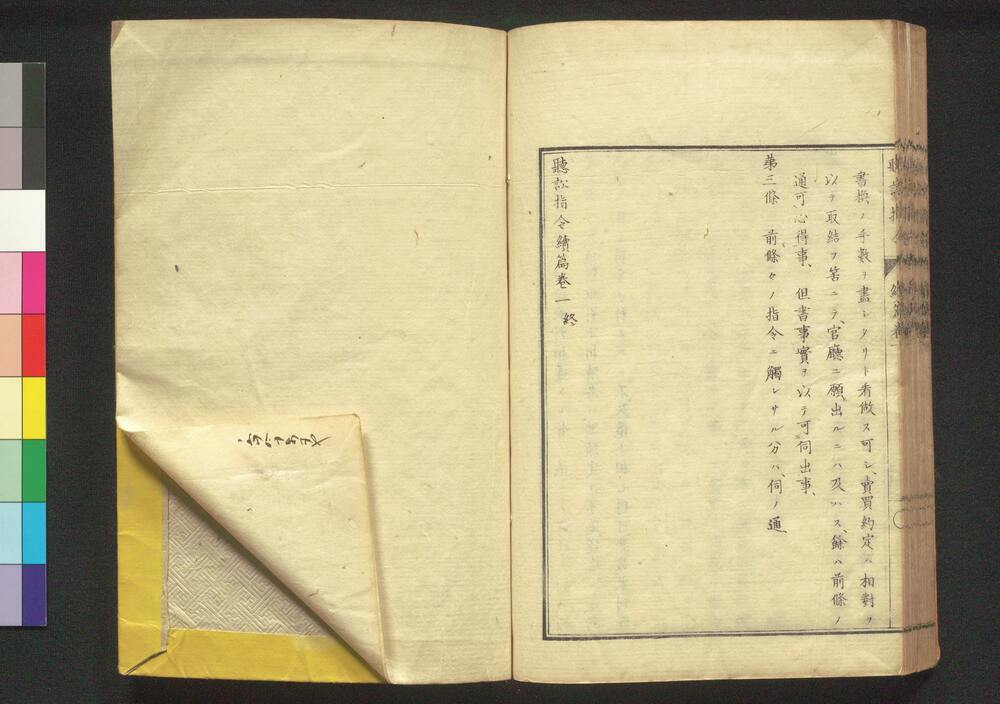 書換ノ手數ヲ盡シタリト看做ス可シ、賣買約定ハ相對ヲ
以テ取結フ筈ニテ、官廳ニ願出ルニハ及ハス、餘ハ前條ノ
通可心得事、但書事實ヲ以テ可伺出事、
第三條 前條々ノ指令ニ觸レサル分ハ、伺ノ通
聽訟指令續篇卷一 終